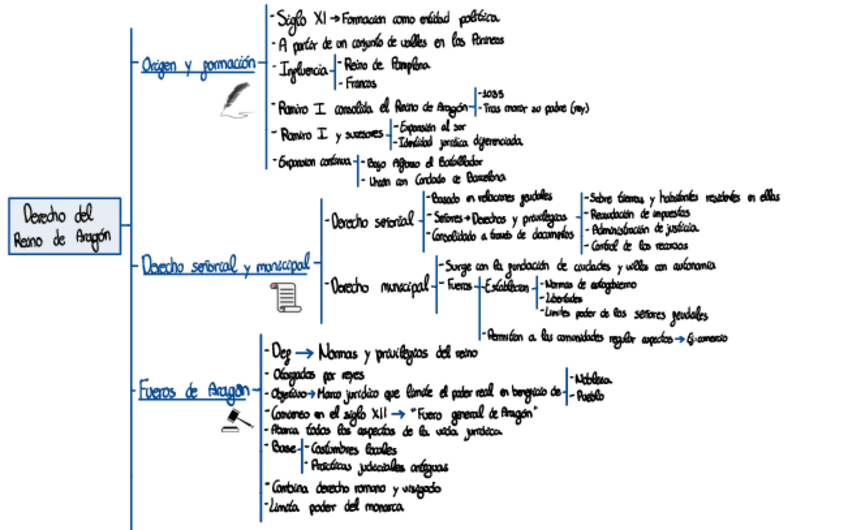 Derecho del
Reino de Aragón
Origen y formación
- Siglo XI → Formación como entidad política
- A partir de un conjunto de valles en los Pirineos
- Influencia
- Reino de Pamplona
- Francos
- Ramiro I consolida el Reino de Aragón
- 1035
- Tras morir su padre (rey)
- Ramiro I y sucesores
- Expansión al sur
- Identidad jurídica diferenciada
- Expansion continua
- Bajo Alfonso el Batallador
- Unión con Condado de Barcelona
Derecho señorial y municipal
- Derecho señorial
- Basado en relaciones feudales
- Señores → Derechos y privilegios
- Consolidado a través de documentos
- Sobre tierras y habitantes residentes en ellas
- Recaudación de impuestos
- Administración de justicia
- Control de los recursos
- Derecho municipal
- Surge con la fundación de ciudades y villas con autonomía
- Fueros
- Establecían
- Normas de autogobierno
- Libertades
- Límites poder de los señores feudales
- Permitían a las comunidades regular aspectos → Ej: comercio
Fueros de Aragón
- Def → Normas y privilegios del reino
- Otorgados por reyes
- Objetivo → Marco jurídico que limite el poder real en beneficio de
- Nobleza
- Pueblo
- Comienzo en el siglo XII → "Fuero general de Aragón"
- Abarca todos los aspectos de la vida jurídica
- Base
- Costumbres locales
- Prácticas judiciales antiguas
- Combina derecho romano y visigodo
- Limita poder del monarca